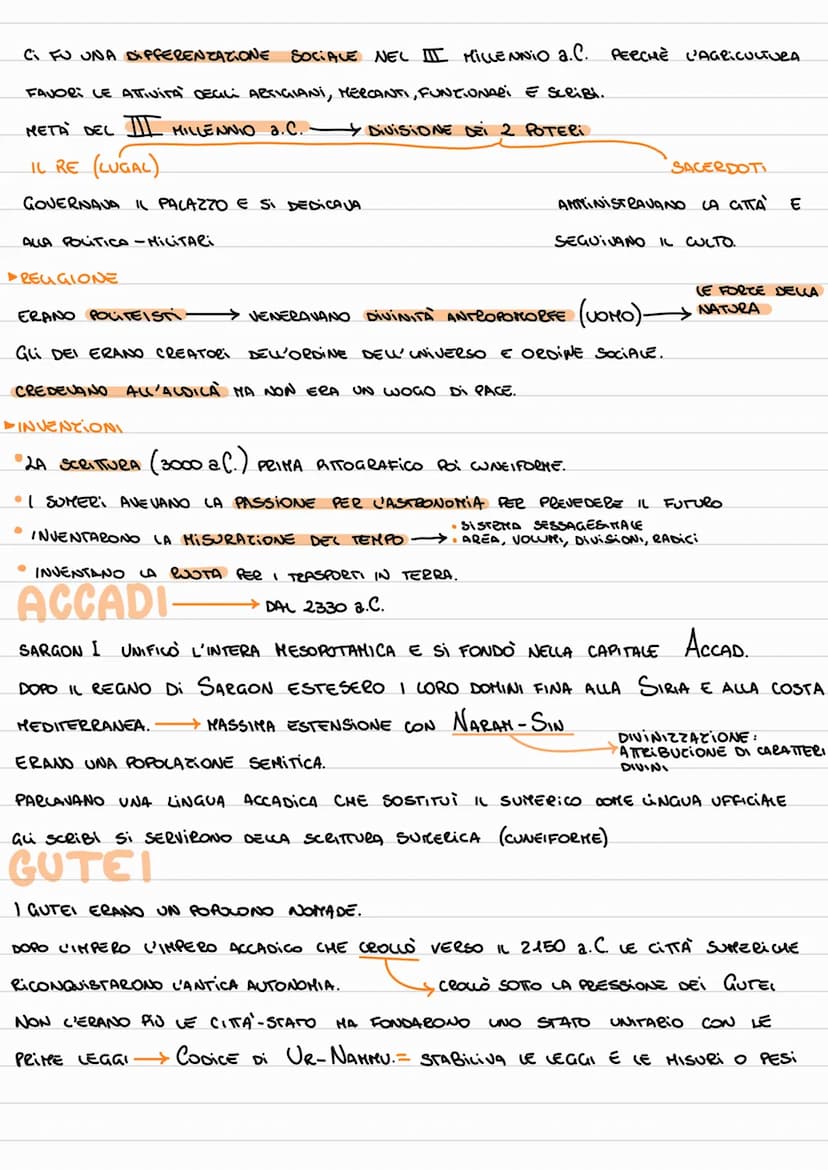 Ci FU UNA DIFFERENZAZIONE SOCIALE NEL III MILLENNIO a.C. PERCHÈ L'AGRICOLTURA
FAVORì LE ATTIVITÀ DEGLI ARTIGIANI, MERCANTI, FUNZIONARI E SCRIBI.
METÀ DEL III MILLENNIO a.C. → DIVISIONE DEI 2 POTERI
IL RE (LUGAL) SACERDOTI
GOVERNAVA IL PALAZZO E SI DEDICAVA AMMINISTRAVANO LA CITTÀ E
ALLA POLITICA - MILITARI SEGUIVANO IL CULTO.
▸RELIGIONE
ERANO POLITEISTI → VENERAVANO DIVINITÀ ANTROPOMORFE (UOMO) → LE FORZE DELLA NATURA
GLI DEI ERANO CREATORI DELL'ORDINE DELL'UNIVERSO E ORDINE SOCIALE.
CREDEVANO ALL'ALDILÀ MA NON ERA UN LUOGO DI PACE.
▸INVENZIONI
• LA SCRITTURA (3000 a.C.) PRIMA PITTOGRAFICO POI CUNEIFORME.
• I SUMERI AVEVANO LA PASSIONE PER L'ASTRONOMIA PER PREVEDERE IL FUTURO
• INVENTARONO LA MISURAZIONE DEL TEMPO → • SISTEMA SESSAGESIMALE
• AREA, VOLUMI, DIVISIONI, RADICI
• INVENTANO LA RUOTA PER I TRASPORTI IN TERRA.
ACCADI → DAL 2330 a.C.
SARGON I UNIFICÒ L'INTERA MESOPOTAMICA E SI FONDÒ NELLA CAPITALE ACCAD.
DOPO IL REGNO DI SARGON ESTESERO I LORO DOMINI FINA ALLA SIRIA E ALLA COSTA
MEDITERRANEA. → MASSIMA ESTENSIONE CON NARAM-SIN
DIVINIZZAZIONE:
ATTRIBUZIONE DI CARATTERI
DIVINI
ERANO UNA POPOLAZIONE SEMITICA.
PARLAVANO UNA LINGUA ACCADICA CHE SOSTITUÌ IL SUMERICO COME LINGUA UFFICIALE
GLI SCRIBI SI SERVIRONO DELLA SCRITTURA SUMERICA (CUNEIFORME)
GUTEI
I GUTEI ERANO UN POPOLONO NOMADE.
DOPO L'IMPERO L'IMPERO ACCADICO CHE CROLLÒ VERSO IL 2150 a.C. LE CITTÀ SUMERICHE
RICONQUISTARONO L'ANTICA AUTONOMIA. → CROLLÒ SOTTO LA PRESSIONE DEI GUTEI
NON C'ERANO PIÙ LE CITTÀ-STATO MA FONDARONO UNO STATO UNITARIO CON LE
PRIME LEGGI → CODICE DI UR-NAMMU. = STABILIVA LE LEGGI E LE MISURI O PESI